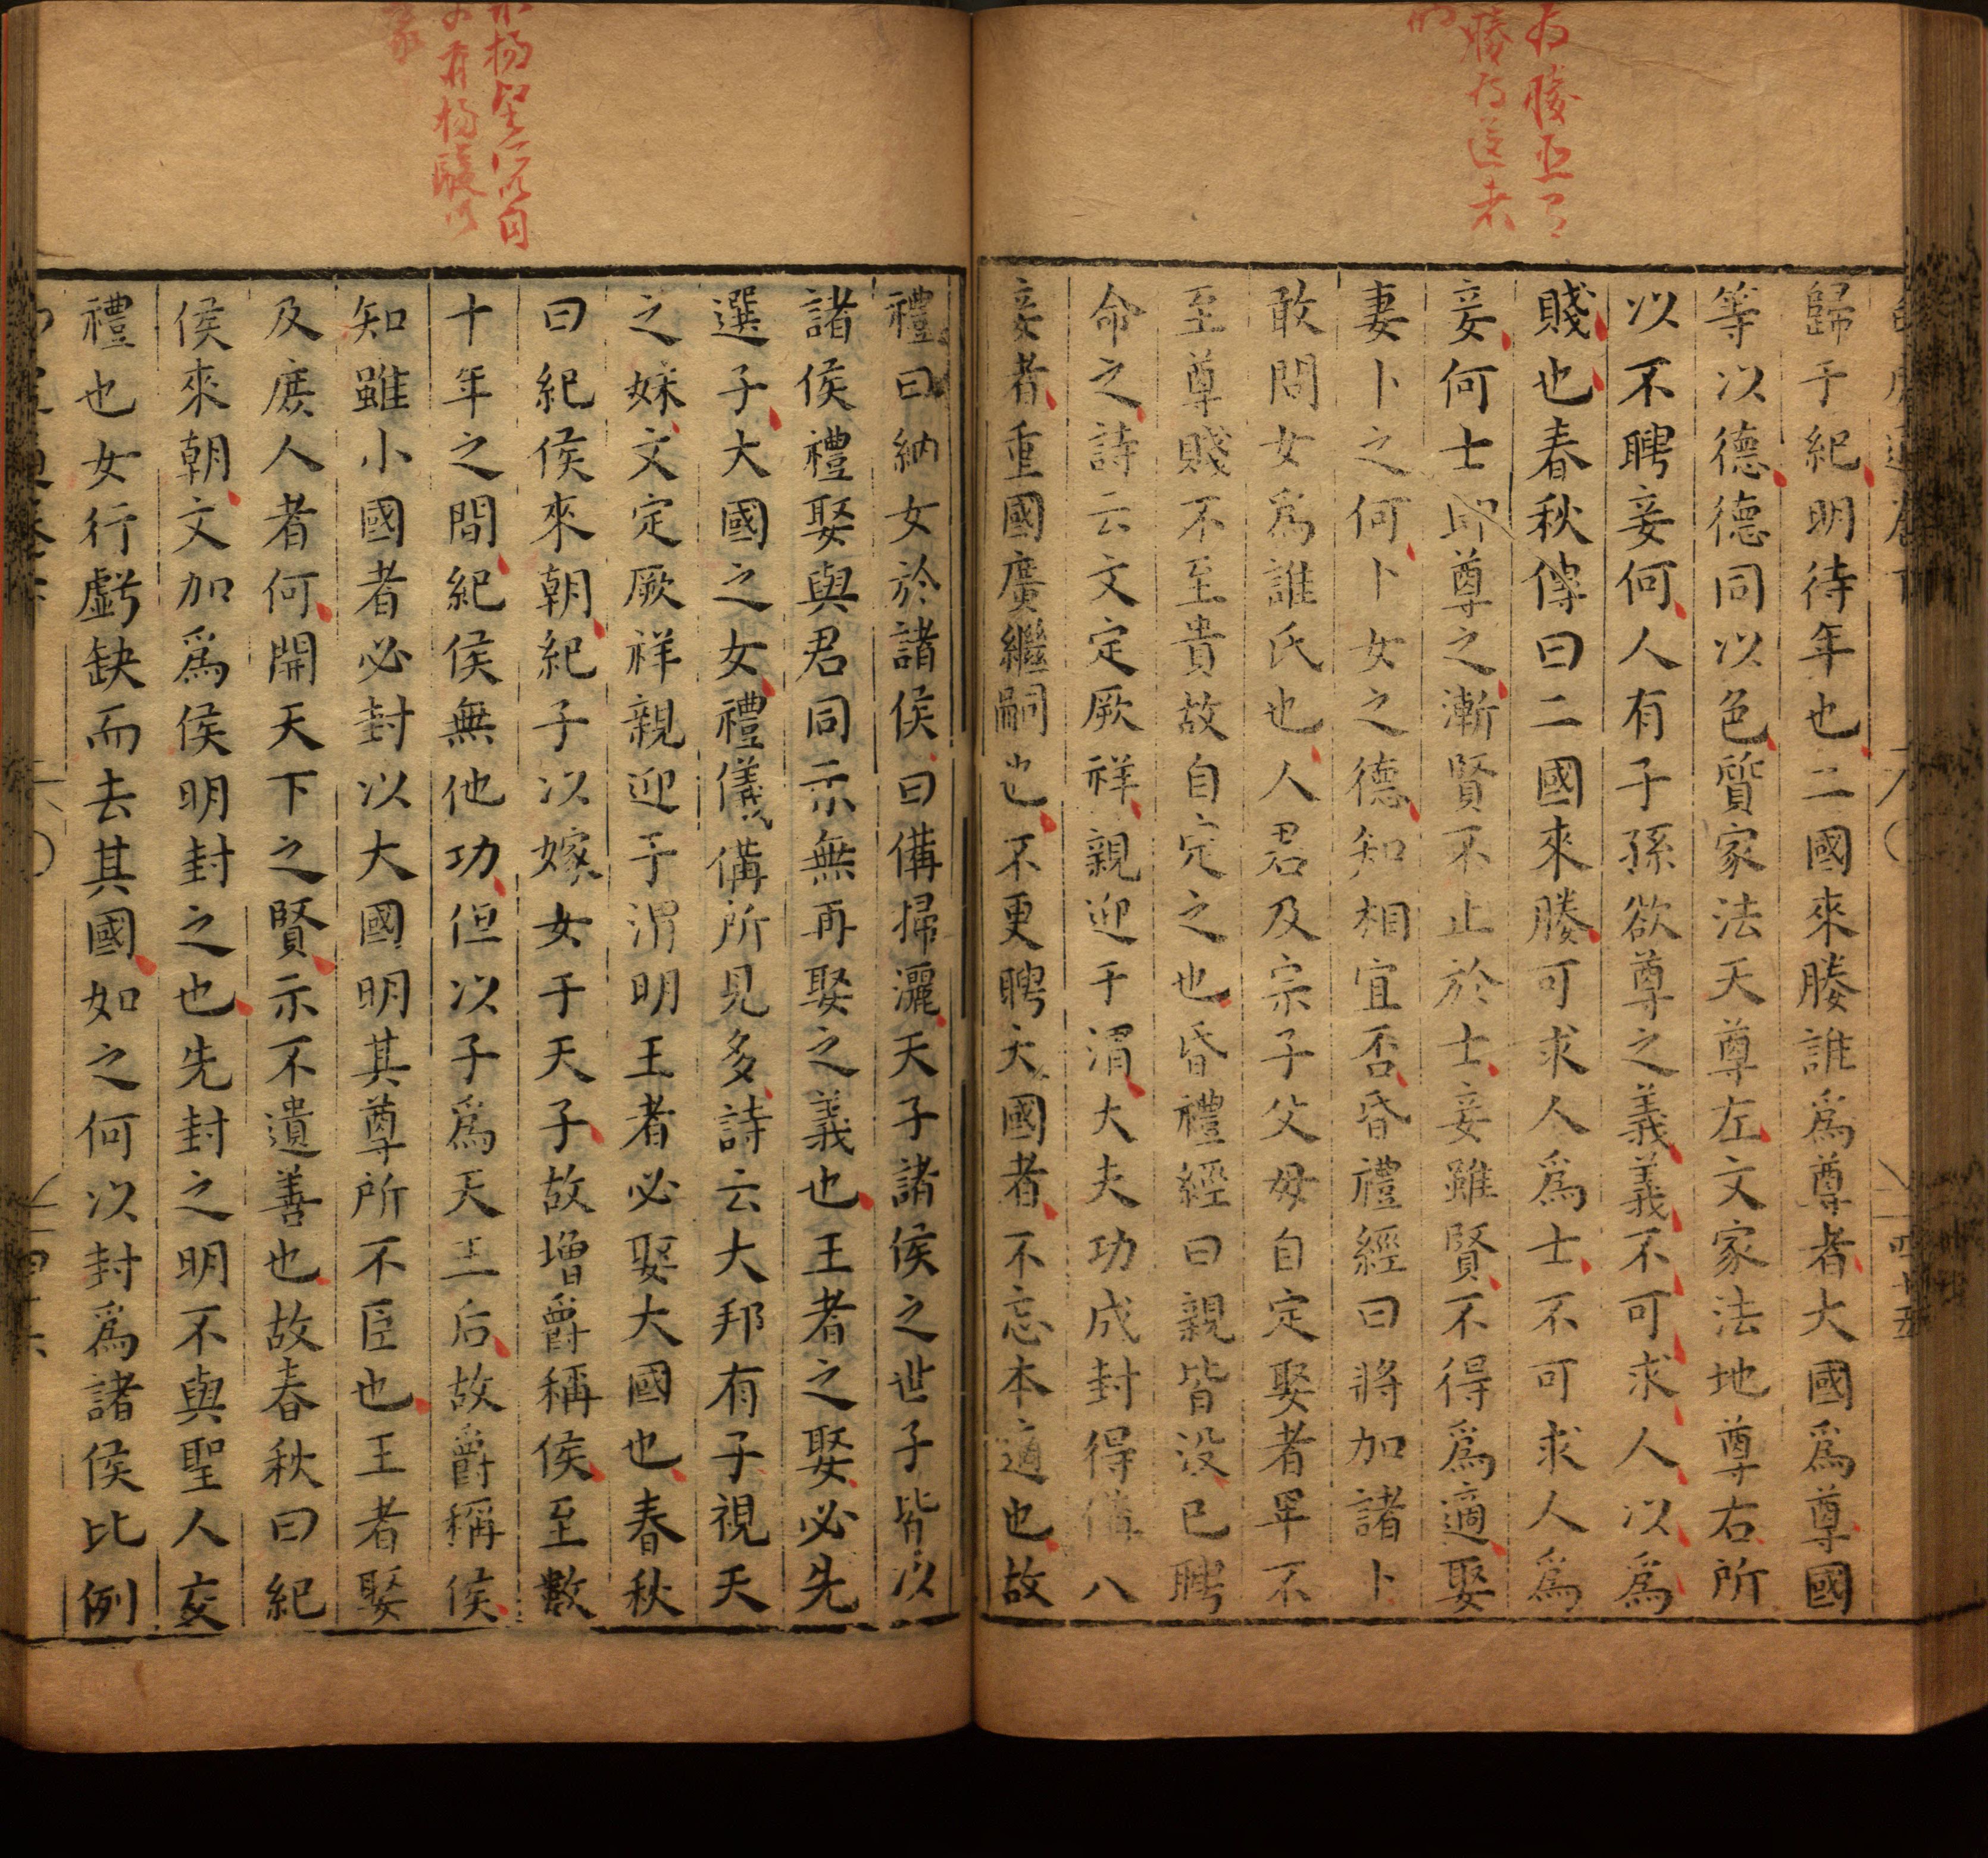 歸于紀明待年也二國來媵誰爲尊者大國爲尊國
等以德德同以色質家法天尊左文家法地尊右所
以不聘妾何人有子孫欲尊之義義不可求人以爲
賤也春秋傳曰二國來媵可求人爲士不可求人爲
妾何士卽尊之漸賢不止於士妾雖賢不得爲適娶
妻卜之何卜女之德知相宜否昏禮經曰將加諸卜
敢問女爲誰氏也人君及宗子父母自定娶者罕不
至尊賤不至貴故自定之也昏禮經曰親皆没已聘
命之詩云文定厥祥親迎于渭大夫功成封得備八
妾者重國廣繼嗣也不更聘大國者不忘本適也故
禮曰納女於諸侯曰備掃灑天子諸侯之世子皆以
諸侯禮娶與君同示無再娶之義也王者之娶必先
選子大國之女禮儀備所見多詩云大邦有子視天
之妹文定厥祥親迎于渭明王者必娶大國也春秋
曰紀侯來朝紀子以嫁女于天子故增爵稱侯至數
十年之間紀侯無他功但以子爲天王后故爵稱侯
知雖小國者必封以大國明其尊所不臣也王者娶
及庶人者何開天下之賢示不遺善也故春秋曰紀
侯來朝文加爲侯明封之也先封之明不與聖人交
禮也女行虧缺而去其國如之何以封爲諸侯比例